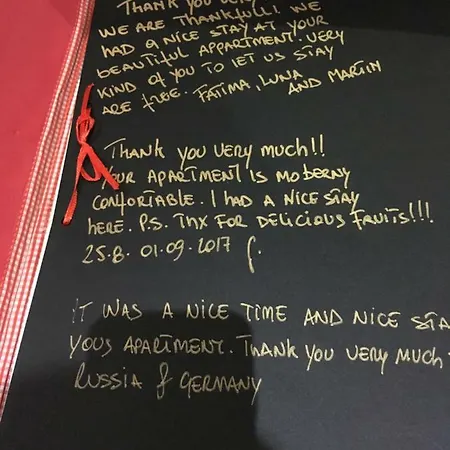 THANK YOU VER
WE ARE THANKFULL! WE
HAD A NICE STAY AT YOUR
BEAUTIFUL APPARTMENT. VERY
KIND OF YOU TO LET US STAY
ARE FREE. FATIMA, LUNA
AND MARTIN
THANK YOU VERY MUCH!!
YOUR APARTMENT IS MODERNY
CONFORTABLE. I HAD A NICE STAY
HERE. P.S. THX FOR DELICIOUS FRUITS!!!
25.8. 01.09.2017
IT WAS A NICE TIME AND NICE STA
YOUS APARTMENT. THANK YOU VERY MUCH
RUSSIA & GERMANY